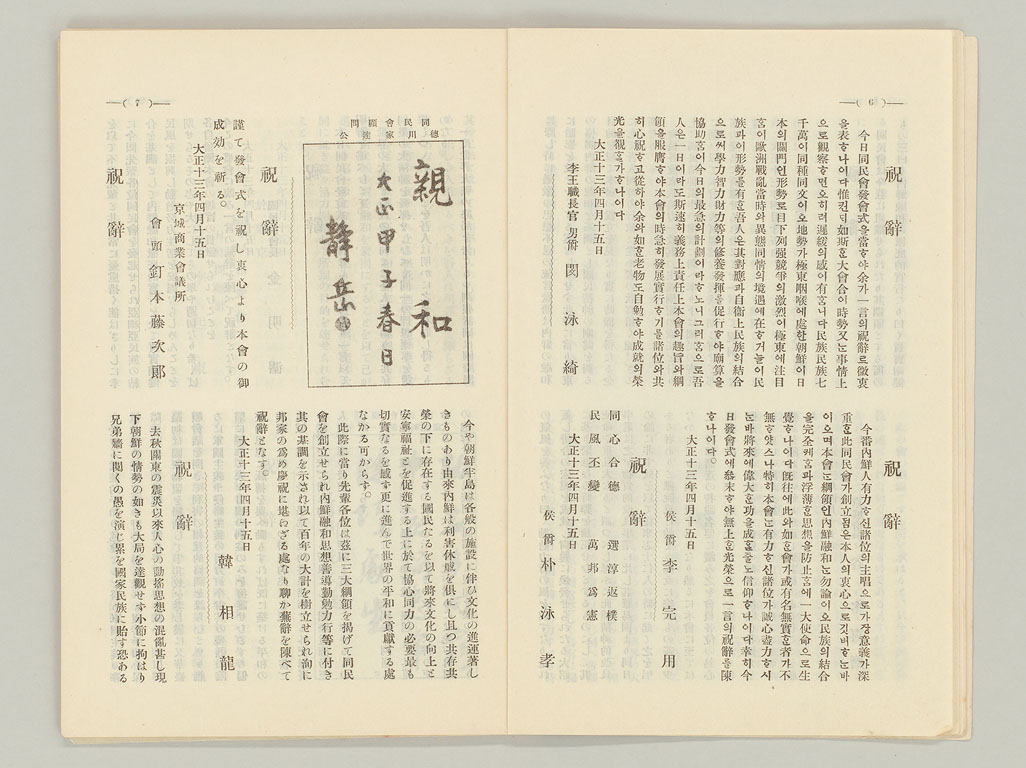 —( 6 )—
祝辭
今日同民會發會式을當ᄒᆞ야余가一言의祝辭르微衷
을表ᄒᆞ나이다惟컨ᄃᆡ如斯ᄒᆞᆫ大會合이時勢又는事情上
으로觀察ᄒᆞ면오히려遲緩의感이有ᄒᆞ니다民族民族七
千萬이同種同文이오地勢가極東咽喉에處ᄒᆞᆫ朝鮮이日
本의關門인形勢로目下列强競爭의激烈이極東에注目
ᄒᆞᆷ이歐洲戰亂當時와異態同情의境遇에在ᄒᆞ거늘이民
族과이形勢를有ᄒᆞᆫ吾人은其對應과自衛上民族의結合
으로써學力智力財力等의修養發揮를促行ᄒᆞ야廟算을
協助ᄒᆞᆷ이今日의最急의計劃이라ᄒᆞ노니그러ᄒᆞᆷ으로吾
人은一日이라도斯速히義務上責任上本會의趣旨와綱
領을服膺ᄒᆞ야本會의時急히發展實行ᄒᆞ기를諸位와共
히心祝ᄒᆞ고從하야余와如ᄒᆞᆫ老物도自勉ᄒᆞ야成就의榮
光을觀ᄒᆞᆯ가ᄒᆞ나이다
大正十三年四月十五日
李王職長官 男爵 閔泳綺
祝辭
今番內鮮人有力ᄒᆞ신諸位의主唱으로가장意義가深
重ᄒᆞᆫ此同民會가創立됨은本人의衷心으로깃버ᄒᆞ는바
이오며本會는綱領인內鮮融和는勿論이오民族의結合
을完全케ᄒᆞᆷ과浮薄ᄒᆞᆫ思想을防止ᄒᆞᆷ에一大使命으로生
覺ᄒᆞ나이다旣往에此와如ᄒᆞᆫ會가或有名無實ᄒᆞᆫ者가不
無ᄒᆞ얏스나特히本會는有力ᄒᆞ신諸位가誠心盡力ᄒᆞ시
는바將來에偉大ᄒᆞᆫ功을成ᄒᆞᆯ줄노信仰ᄒᆞ나이다幸히今
日發會式에參末ᄒᆞ야無上ᄒᆞᆫ光榮으로一言의祝辭를陳
ᄒᆞ나이다。
大正十三年四月十五日
侯爵 李完用
祝辭
同心合德 選淳返樸
民風丕變 萬邦爲憲
大正十三年四月十五日
侯爵 朴泳孝
—( 7 )—
同民會顧問
德川家達公
親和
大正甲子春日
靜岳
祝辭
謹て發會式を祝し衷心より本會の御
成効を祈る。
大正十三年四月十五日
京城商業會議所
會頭 釘本藤次郞
祝辭
今や朝鮮半島は各般の施設に伴ひ文化の進運著し
きものあり由來內鮮は利害休戚を俱にし且つ共存共
榮の下に存在する國民たるを以て將來文化の向上と
安寧福祉とを促進する上に於て協心同力の必要最も
切實なるを感す更に進んで世界の平和に貢獻する處
なかる可からす。
此際に當り先輩各位は茲に三大綱領を揭げて同民
會を創立せられ內鮮融和思想善導勤勉力行等に付き
其の基調を示され以て百年の大計を樹立せられ洵に
邦家の爲め慶祝に堪わざる處なり聊か蕪辭を陳べて
祝辭となす。
大正十三年四月十五日
韓相龍
祝辭
去秋關東の震災以來人心の動搖思想の混亂甚し現
下朝鮮の情勢の如きも大局を達觀せす小節に拘はり
兄弟牆に鬩くの愚を演じ累を國家民族に貽す恐ある